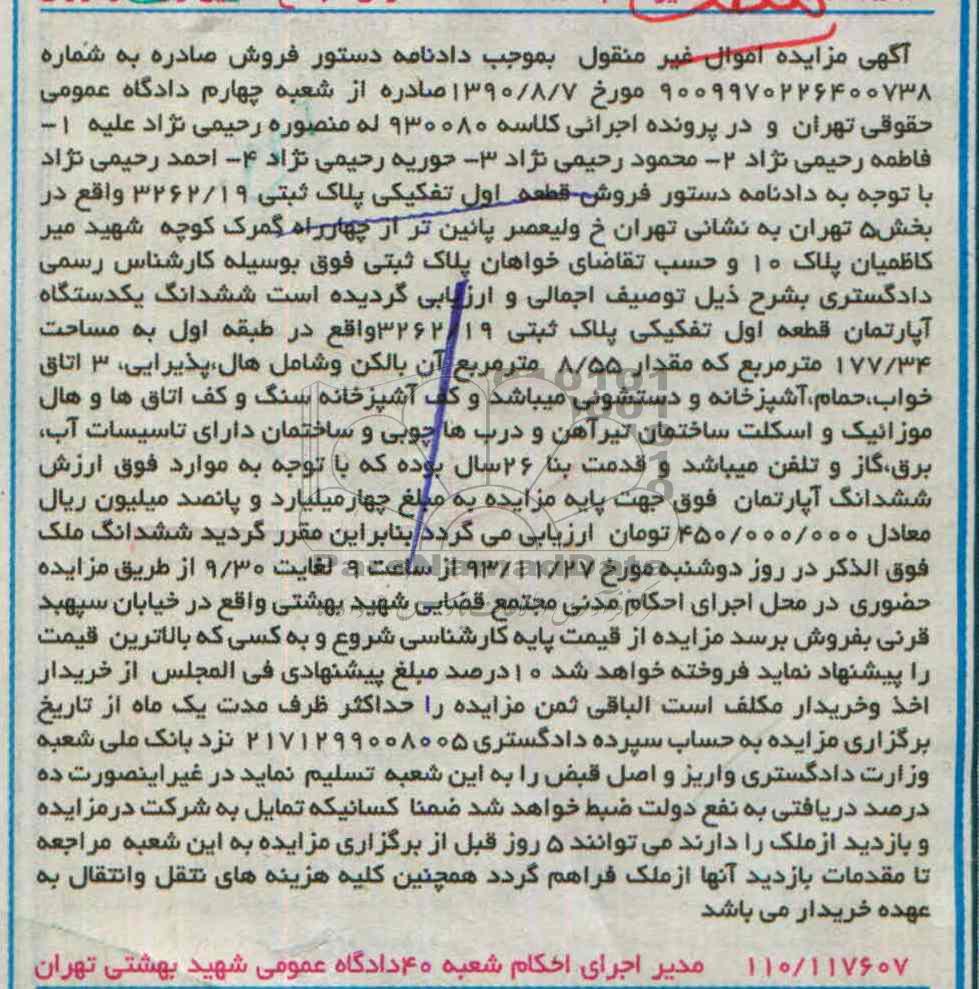 آگهی مزایده اموال غیر منقول بموجب دادنامه دستور فروش صادره به شماره
۹۰۰۹۹۷۰۲۲۶۴۰۰۷۳۸ مورخ ۱۳۹۰/۸/۷صادره از شعبه چهارم دادگاه عمومی
حقوقی تهران و در پرونده اجرائی کلاسه ۹۳۰۰۸۰ له منصوره رحیمی نژاد علیه ۱-
فاطمه رحیمی نژاد ۲- محمود رحیمی نژاد ۳- حوریه رحیمی نژاد ۴- احمد رحیمی نژاد
با توجه به دادنامه دستور فروش قطعه اول تفکیکی پلاک ثبتی ۳۲۶۲/۱۹ واقع در
بخش۵ تهران به نشانی تهران خ ولیعصر پائین تر از چهارراه گمرک کوچه شهید میر
کاظمیان پلاک ۱۰ و حسب تقاضای خواهان پلاک ثبتی فوق بوسیله کارشناس رسمی
دادگستری بشرح ذیل توصیف اجمالی و ارزیابی گردیده است ششدانگ یکدستگاه
آپارتمان قطعه اول تفکیکی پلاک ثبتی ۳۲۶۲/۱۹واقع در طبقه اول به مساحت
۱۷۷/۳۴ مترمربع که مقدار ۸/۵۵ مترمربع آن بالکن وشامل هال،پذیرایی، ۳ اتاق
خواب،حمام،آشپزخانه و دستشوئی میباشد و کف آشپزخانه سنگ و کف اتاق ها و هال
موزائیک و اسکلت ساختمان تیرآهن و درب ها چوبی و ساختمان دارای تاسیسات آب،
برق،گاز و تلفن میباشد و قدمت بنا ۲۶سال بوده که با توجه به موارد فوق ارزش
ششدانگ آپارتمان فوق جهت پایه مزایده به مبلغ چهارمیلیارد و پانصد میلیون ریال
معادل ۴۵۰/۰۰۰/۰۰۰ تومان ارزیابی می گردد بنابراین مقرر گردید ششدانگ ملک
فوق الذکر در روز دوشنبه مورخ ۹۳/۱۱/۲۷ از ساعت ۹ لغایت ۹/۳۰ از طریق مزایده
حضوری در محل اجرای احکام مدنی مجتمع قضایی شهید بهشتی واقع در خیابان سپهبد
قرنی بفروش برسد مزایده از قیمت پایه کارشناسی شروع و به کسی که بالاترین قیمت
را پیشنهاد نماید فروخته خواهد شد ۱۰درصد مبلغ پیشنهادی فی المجلس از خریدار
اخذ وخریدار مکلف است الباقی ثمن مزایده را حداکثر ظرف مدت یک ماه از تاریخ
برگزاری مزایده به حساب سپرده دادگستری ۲۱۷۱۲۹۹۰۰۸۰۰۵ نزد بانک ملی شعبه
وزارت دادگستری واریز و اصل قبض را به این شعبه تسلیم نماید در غیراینصورت ده
درصد دریافتی به نفع دولت ضبط خواهد شد ضمنا کسانیکه تمایل به شرکت درمزایده
و بازدید ازملک را دارند می توانند ۵ روز قبل از برگزاری مزایده به این شعبه مراجعه
تا مقدمات بازدید آنها ازملک فراهم گردد همچنین کلیه هزینه های نتقل وانتقال به
عهده خریدار می باشد
۱۱۰/۱۱۷۶۰۷ مدیر اجرای احکام شعبه ۴۰دادگاه عمومی شهید بهشتی تهران
ParsNamadData